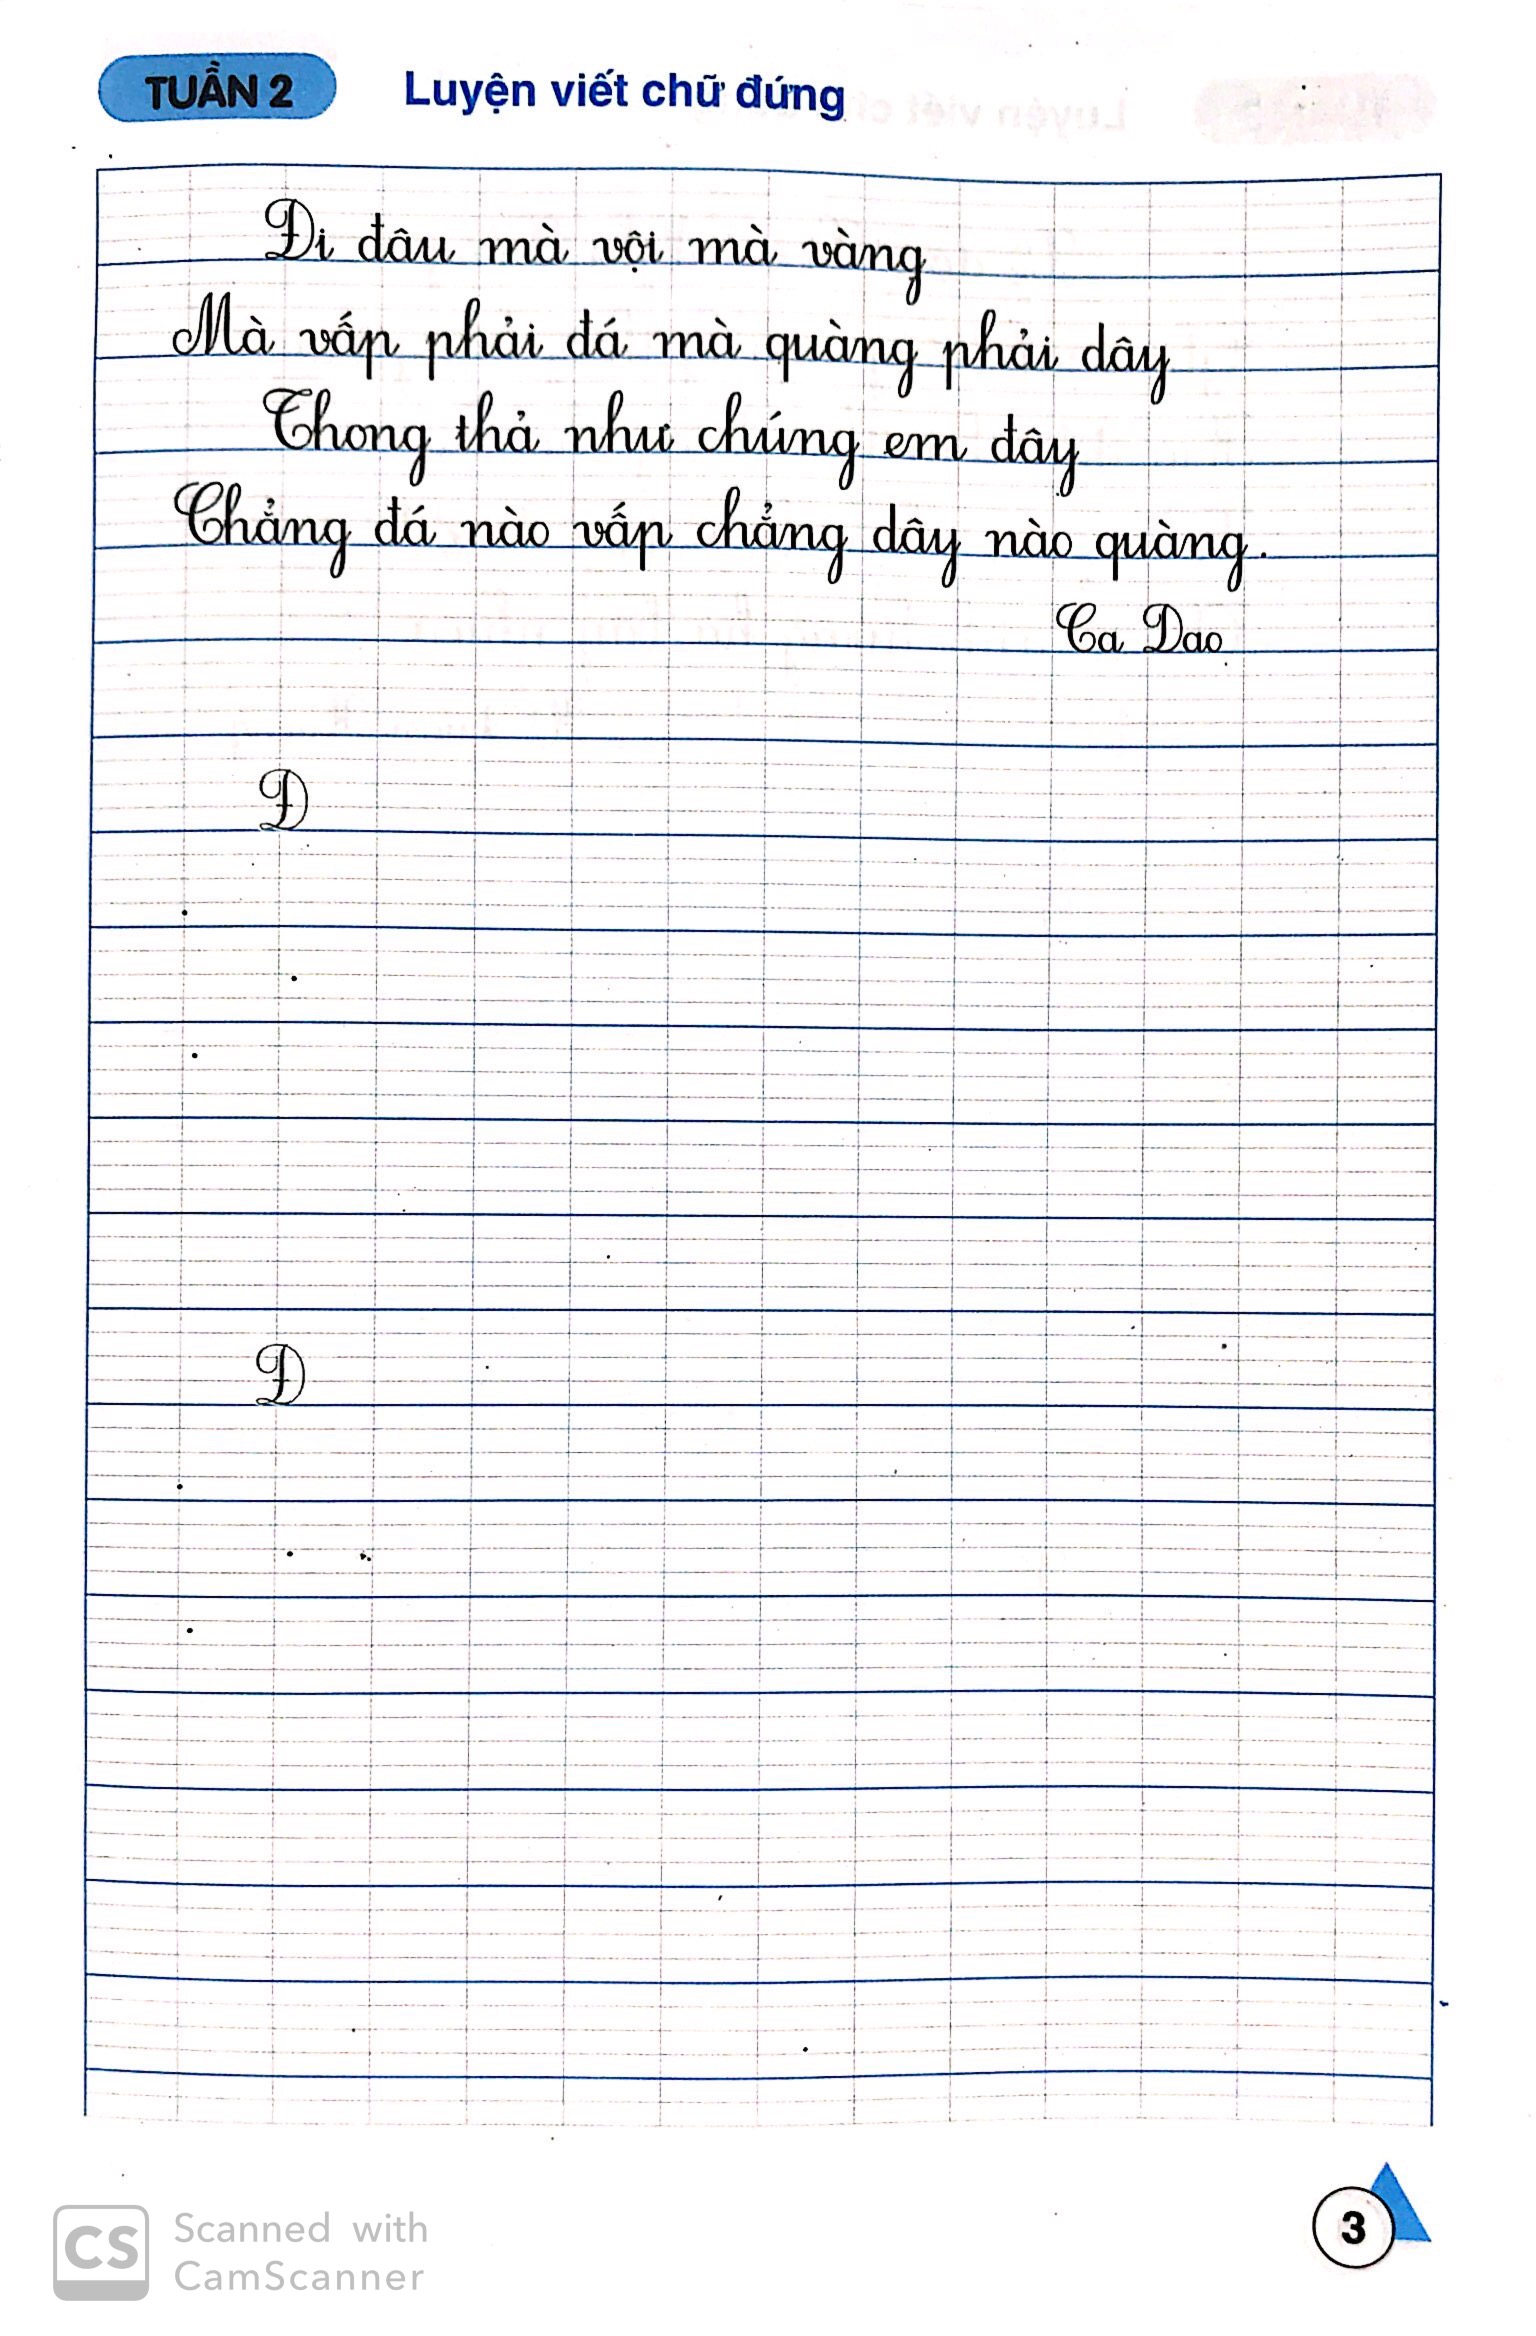 TUẦN 2 Luyện viết chữ đứng
Đi đâu mà vội mà vàng
Mà vấp phải đá mà quàng phải dây
Thong thả như chúng em đây
Chẳng đá nào vấp chẳng dây nào quàng.
Ca Dao
Đ
Đ
3
CS Scanned with
CamScanner